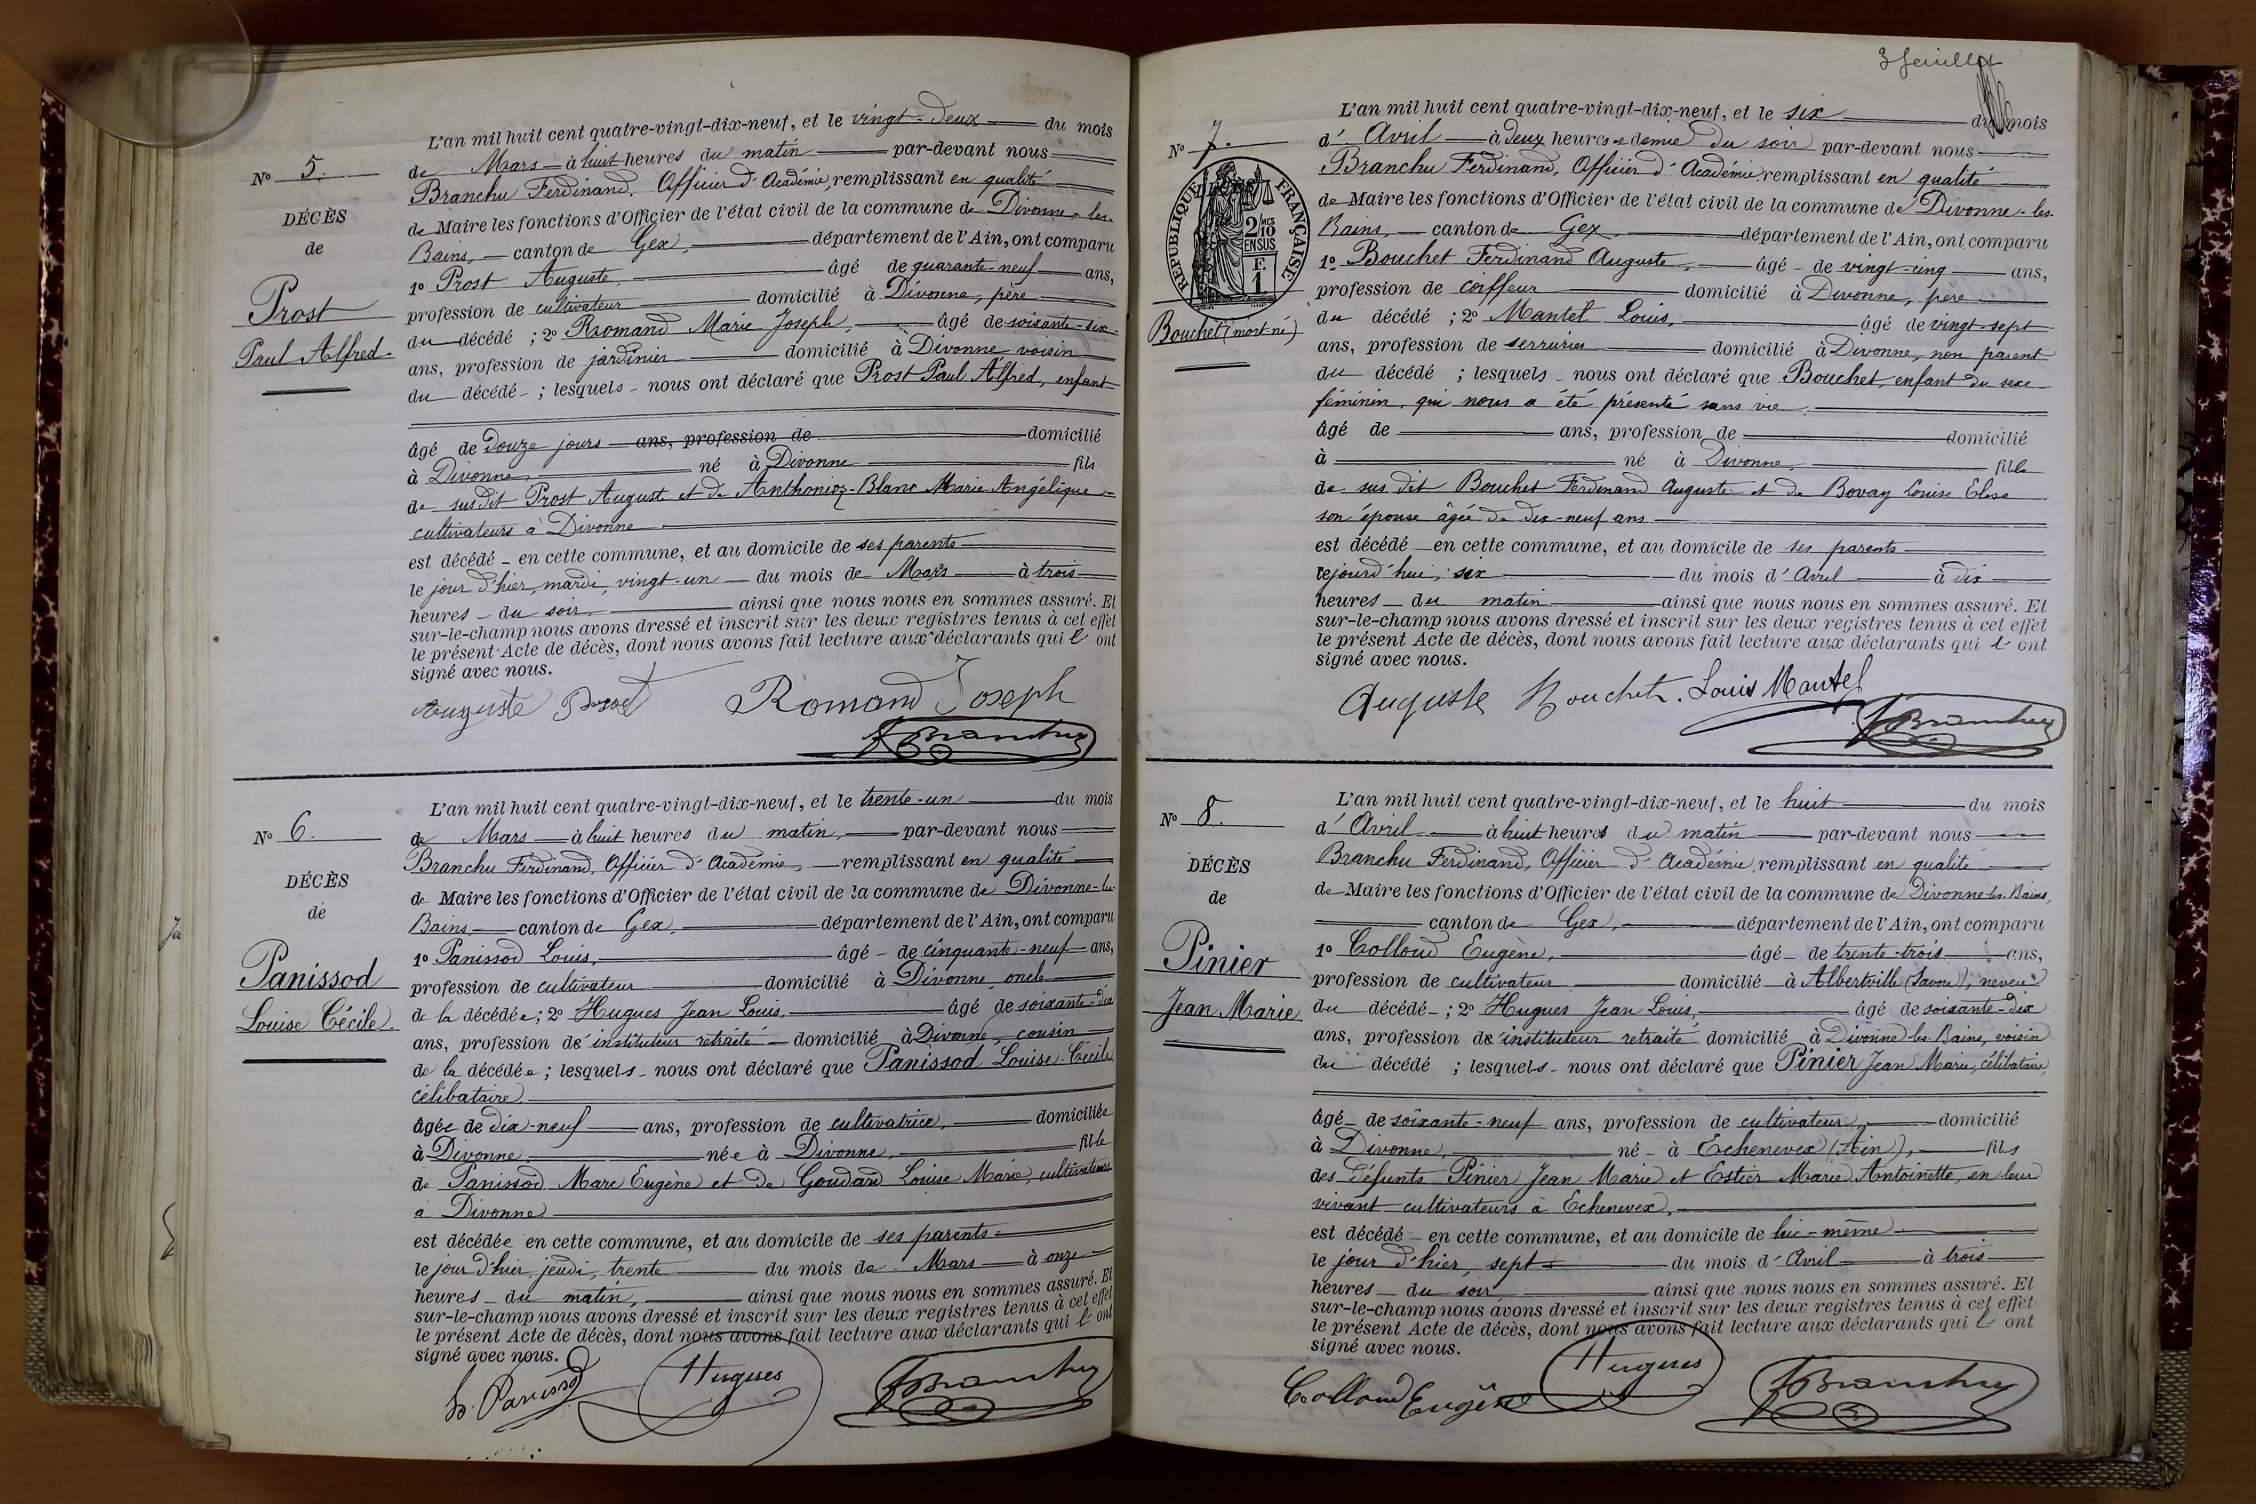 N° 5.
DÉCÈS
de
Prost
Paul Alfred
L'an mil huit cent quatre-vingt-dix-neuf, et le vingt-deux du mois
de Mars à huit heures du matin par-devant nous
Branchu Ferdinand, Officier d'Académie, remplissant en qualité
de Maire les fonctions d'Officier de l'état civil de la commune de Divonne-les-
Bains, canton de Gex, département de l'Ain, ont comparu
1° Prost Auguste, âgé de quarante-neuf ans,
profession de cultivateur domicilié à Divonne, père
du décédé ; 2° Romand Marie Joseph, âgé de soixante-six
ans, profession de jardinier domicilié à Divonne voisin
du décédé ; lesquels nous ont déclaré que Prost Paul Alfred, enfant
âgé de douze jours ans, profession de domicilié
à Divonne né à Divonne fils
de sus dit Prost Auguste et de Anthonioz-Blanc Marie Angélique
cultivateurs à Divonne
est décédé en cette commune, et au domicile de ses parents
le jour d'hier, mardi, vingt-un du mois de Mars à trois
heures du soir ainsi que nous nous en sommes assuré. Et
sur-le-champ nous avons dressé et inscrit sur les deux registres tenus à cet effet
le présent Acte de décès, dont nous avons fait lecture aux déclarants qui l' ont
signé avec nous.
Auguste Prost Romand Joseph
F Branchu
N° 6.
DÉCÈS
de
Panissod
Louise Cécile
L'an mil huit cent quatre-vingt-dix-neuf, et le trente-un du mois
de Mars à huit heures du matin, par-devant nous
Branchu Ferdinand, Officier d'Académie, remplissant en qualité
de Maire les fonctions d'Officier de l'état civil de la commune de Divonne-les-
Bains, canton de Gex, département de l'Ain, ont comparu
1° Panissod Louis, âgé de cinquante-neuf ans,
profession de cultivateur domicilié à Divonne, oncle
de la décédée ; 2° Hugues Jean Louis, âgé de soixante-dix
ans, profession de instituteur retraité domicilié à Divonne, cousin
de la décédée ; lesquels nous ont déclaré que Panissod Louise Cécile
célibataire
âgée de dix-neuf ans, profession de cultivatrice, domiciliée
à Divonne née à Divonne, fille
de Panissod Marc Eugène et de Goudard Louise Marie, cultivateurs
à Divonne
est décédée en cette commune, et au domicile de ses parents
le jour d'hier, jeudi, trente du mois de Mars à onze
heures du matin, ainsi que nous nous en sommes assuré. Et
sur-le-champ nous avons dressé et inscrit sur les deux registres tenus à cet effet
le présent Acte de décès, dont nous avons fait lecture aux déclarants qui l' ont
signé avec nous.
L. Panissod Hugues F Branchu
3 feuillet
N° 7.
RÉPUBLIQUE FRANÇAISE
2/10 MES
EN SUS
F.
1.
Bouchet (mort-né)
L'an mil huit cent quatre-vingt-dix-neuf, et le six du mois
d' Avril à deux heures et demie du soir par-devant nous
Branchu Ferdinand, Officier d'Académie, remplissant en qualité
de Maire les fonctions d'Officier de l'état civil de la commune de Divonne-les-
Bains, canton de Gex, département de l'Ain, ont comparu
1° Bouchet Ferdinand Auguste, âgé de vingt-cinq ans,
profession de coiffeur domicilié à Divonne, père
du décédé ; 2° Mantel Louis, âgé de vingt-sept
ans, profession de serrurier domicilié à Divonne, non parent
du décédé ; lesquels nous ont déclaré que Bouchet, enfant du sexe
féminin, qui nous a été présenté sans vie
âgé de ans, profession de domicilié
à né à Divonne, fille
de sus dit Bouchet Ferdinand Auguste et de Bovay Louise Elise
son épouse âgée de dix-neuf ans
est décédé en cette commune, et au domicile de ses parents
cejourd'hui, six du mois d' Avril à dix
heures du matin ainsi que nous nous en sommes assuré. Et
sur-le-champ nous avons dressé et inscrit sur les deux registres tenus à cet effet
le présent Acte de décès, dont nous avons fait lecture aux déclarants qui l' ont
signé avec nous.
Auguste Bouchet. Louis Mantel
F Branchu
N° 8.
DÉCÈS
de
Pinier
Jean Marie
L'an mil huit cent quatre-vingt-dix-neuf, et le huit du mois
d' Avril à huit heures du matin par-devant nous
Branchu Ferdinand, Officier d'Académie, remplissant en qualité
de Maire les fonctions d'Officier de l'état civil de la commune de Divonne-les-Bains,
canton de Gex, département de l'Ain, ont comparu
1° Colloud Eugène, âgé de trente-trois ans,
profession de cultivateur domicilié à Albertville (Savoie), neveu
du décédé ; 2° Hugues Jean Louis, âgé de soixante-dix
ans, profession de instituteur retraité domicilié à Divonne-les-Bains, voisin
du décédé ; lesquels nous ont déclaré que Pinier Jean Marie, célibataire,
âgé de soixante-neuf ans, profession de cultivateur, domicilié
à Divonne, né à Echenevex (Ain), fils
des défunts Pinier Jean Marie et Estier Marie Antoinette, en leur
vivant cultivateurs à Echenevex,
est décédé en cette commune, et au domicile de lui-même
le jour d'hier, sept du mois d' Avril à trois
heures du soir ainsi que nous nous en sommes assuré. Et
sur-le-champ nous avons dressé et inscrit sur les deux registres tenus à cet effet
le présent Acte de décès, dont nous avons fait lecture aux déclarants qui l' ont
signé avec nous.
Colloud Eugène Hugues F Branchu